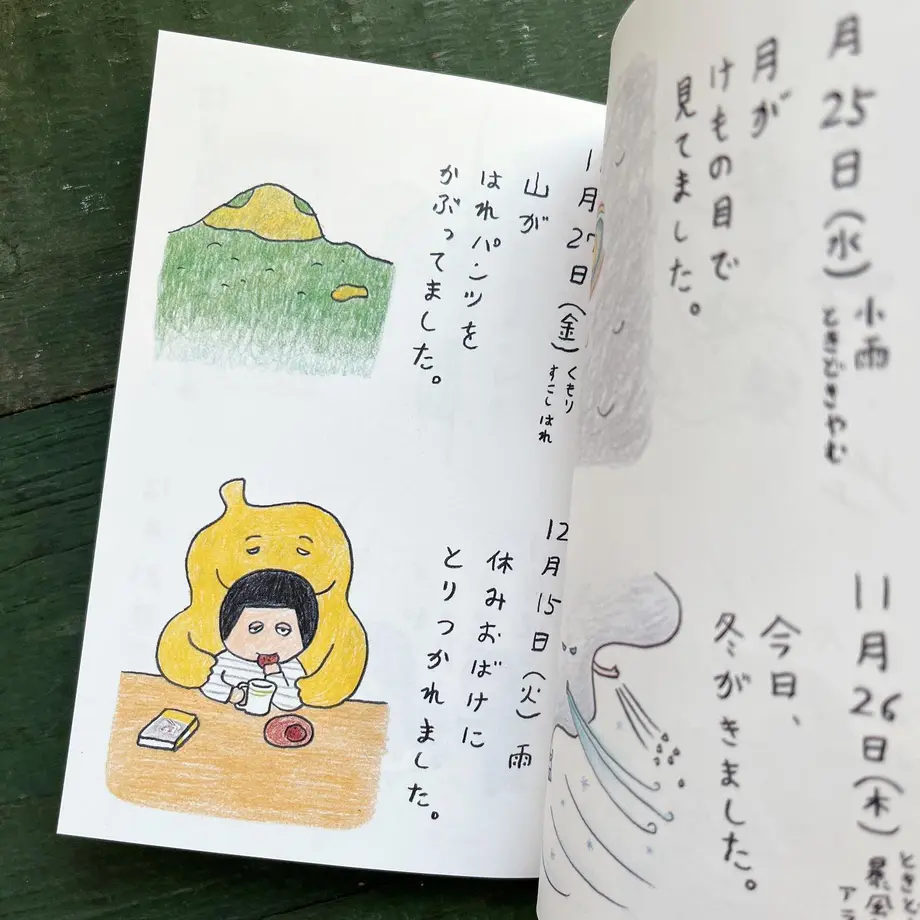 月25日(水)
小雨
ときどきやむ
月が
けもの目で
見てました。
11月26日(木)
ときど
暴風
ア
今日、
冬がきました。
1月27日(金)
くもり
すこしはれ
山が
はれパンツを
かぶってました。
12月15日(火)雨
休みおばけに
とりつかれました。